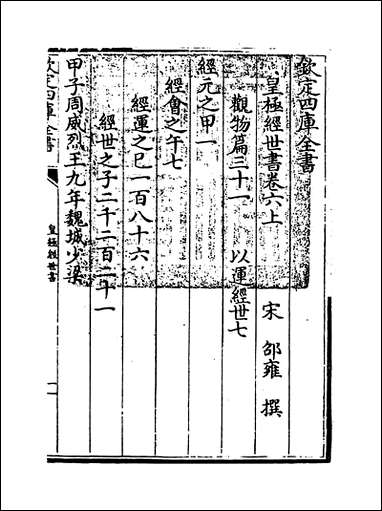 欽定四庫全書
皇極經世書卷六上
宋 邵雍 撰
觀物篇三十一 以運經世七
經元之甲一
經會之午七
經運之巳一百八十六
經世之子二千二百二十一
甲子周威烈王九年魏城少梁
欽定四庫全書
皇極經世書
一